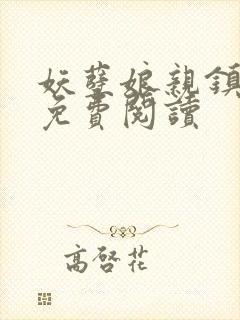 妖孽娘親鎮
免費閱讀
高啓花